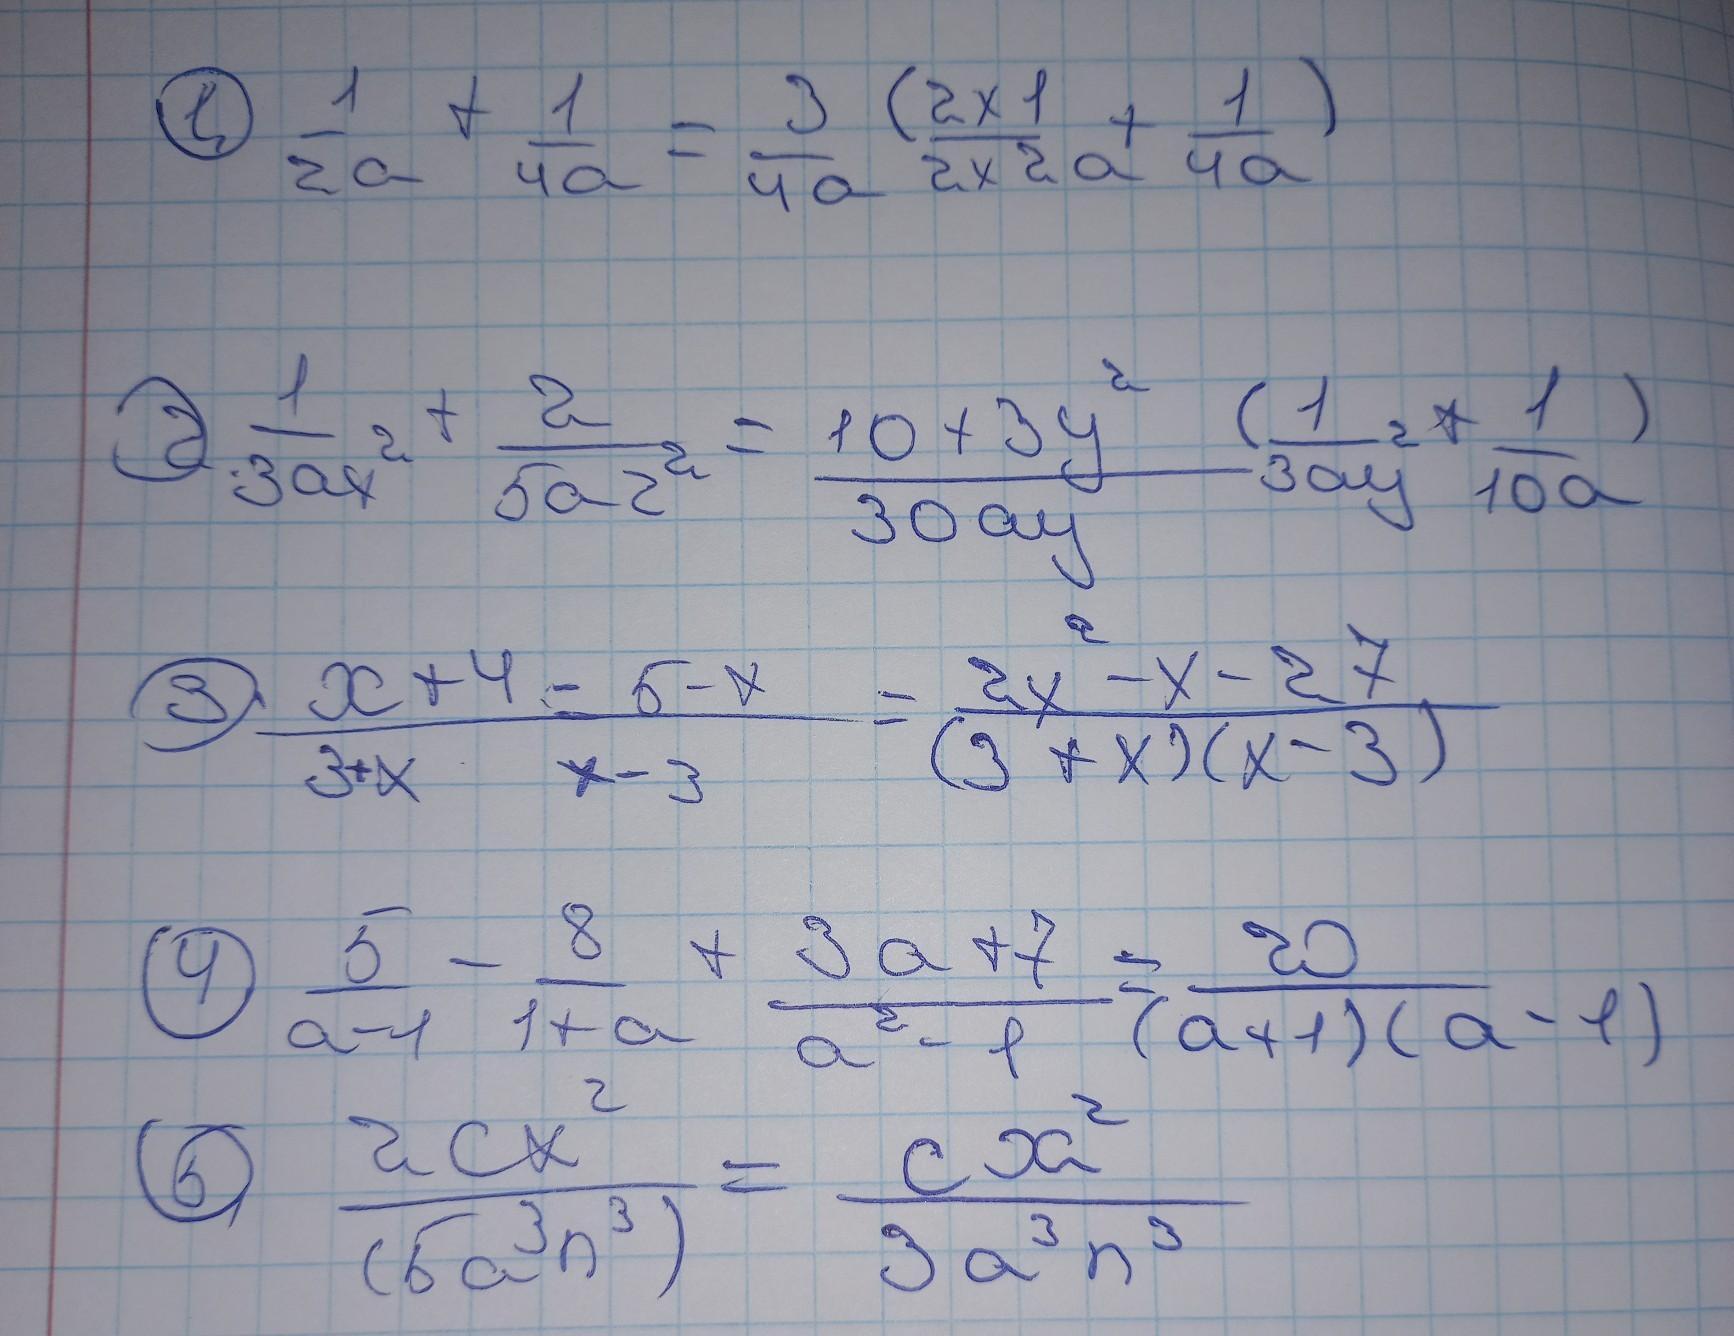 ① 1/2a + 1/4a = 3/4a (2x1/2x2a + 1/4a)
② 1/3ax² + 2/5az² = 10+3y²/30ay (1/3ay² + 1/10a)
③ x+4/3+x = 5-x/x-3 = 2x²-x-27/(3+x)(x-3)
④ 5/a-1 - 8/1+a + 3a+7/a²-1 = 20/(a+1)(a-1)
⑤ 2cx²/(5a³n³) = cx²/3a³n³